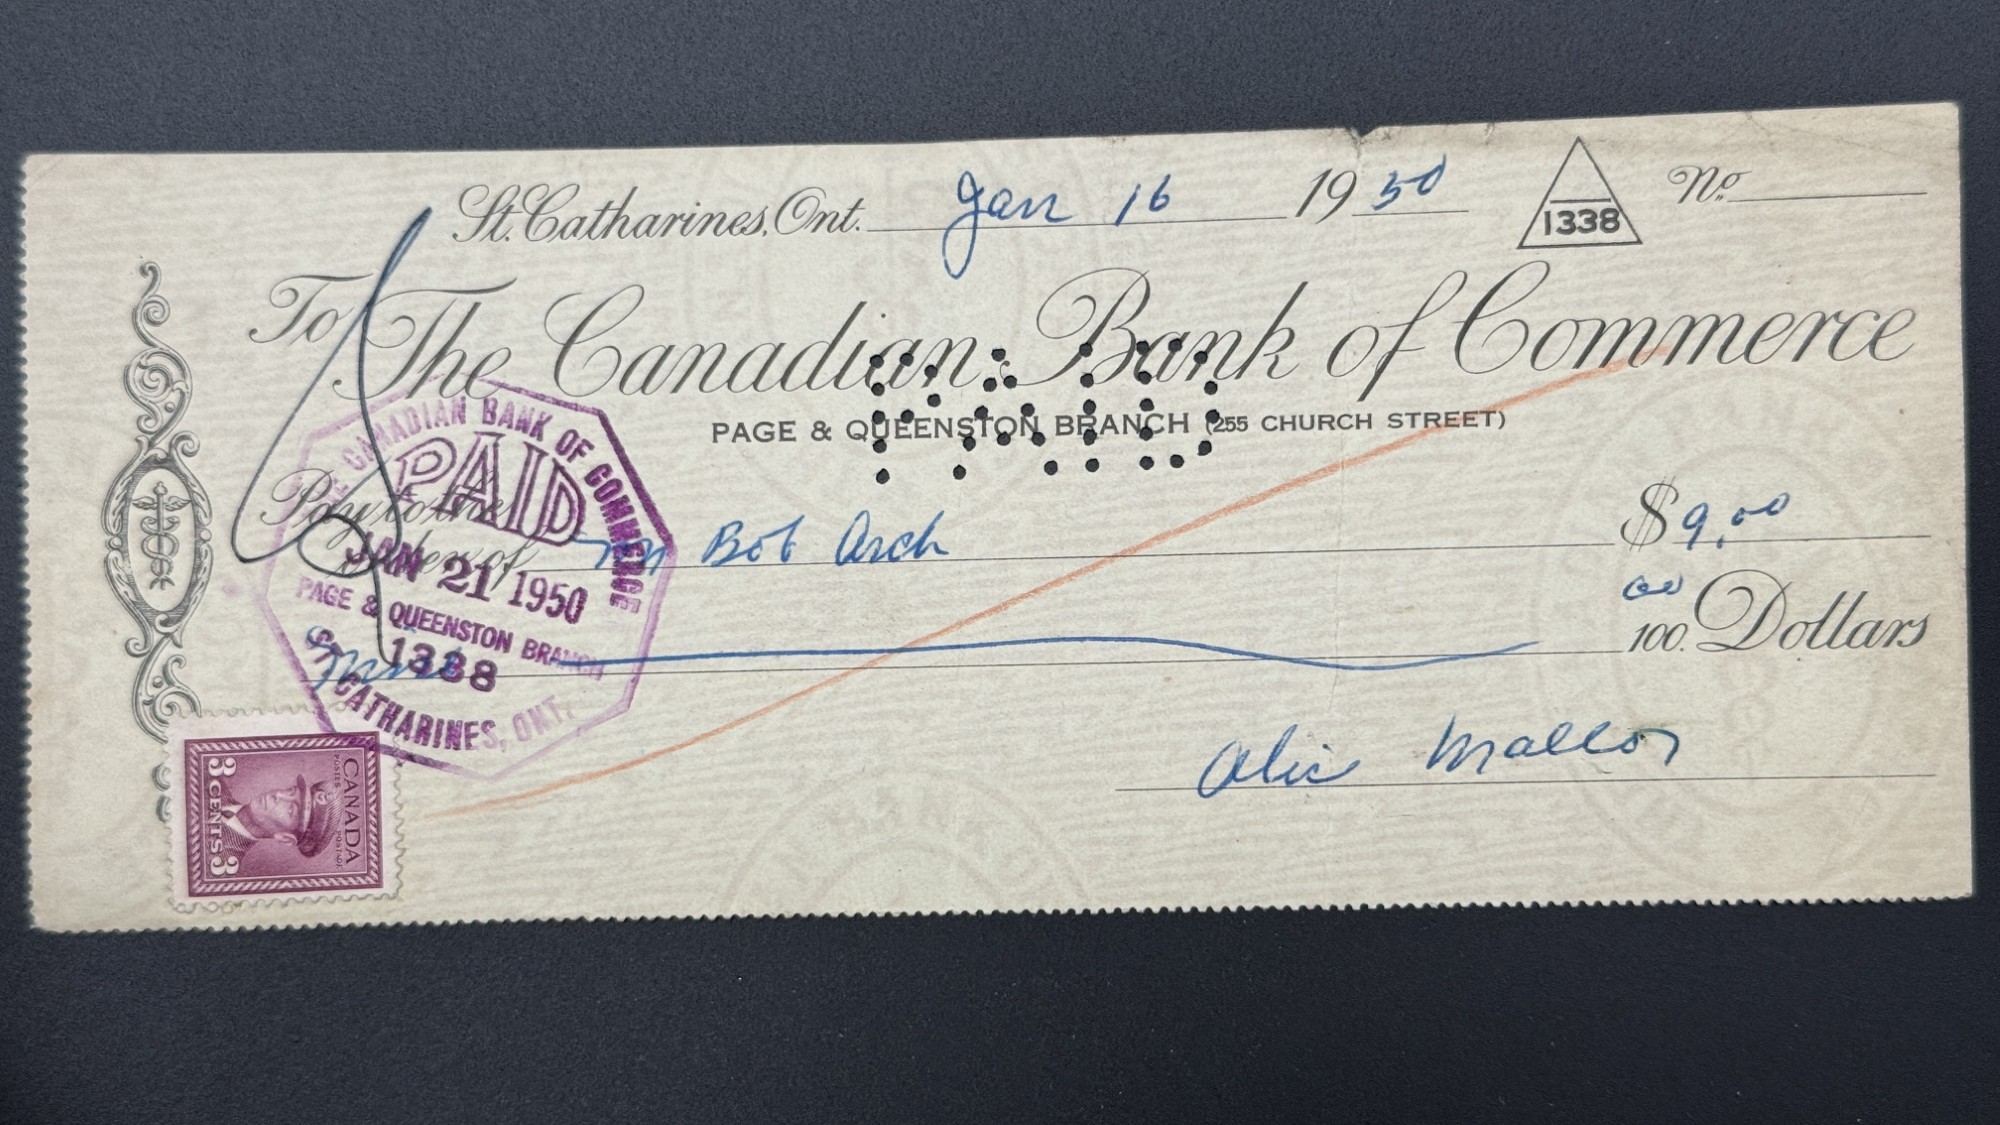 St. Catharines, Ont. Jan 16 1950 1338 No.
To The Canadian Bank of Commerce
PAGE & QUEENSTON BRANCH (255 CHURCH STREET)
PAID
Pay to the
order of Bob Arch $9.00
Nine 00/100 Dollars
THE CANADIAN BANK OF COMMERCE
PAID
JAN 21 1950
PAGE & QUEENSTON BRANCH
1338
ST. CATHARINES, ONT.
CANADA
POSTES POSTAGE
3 CENTS 3